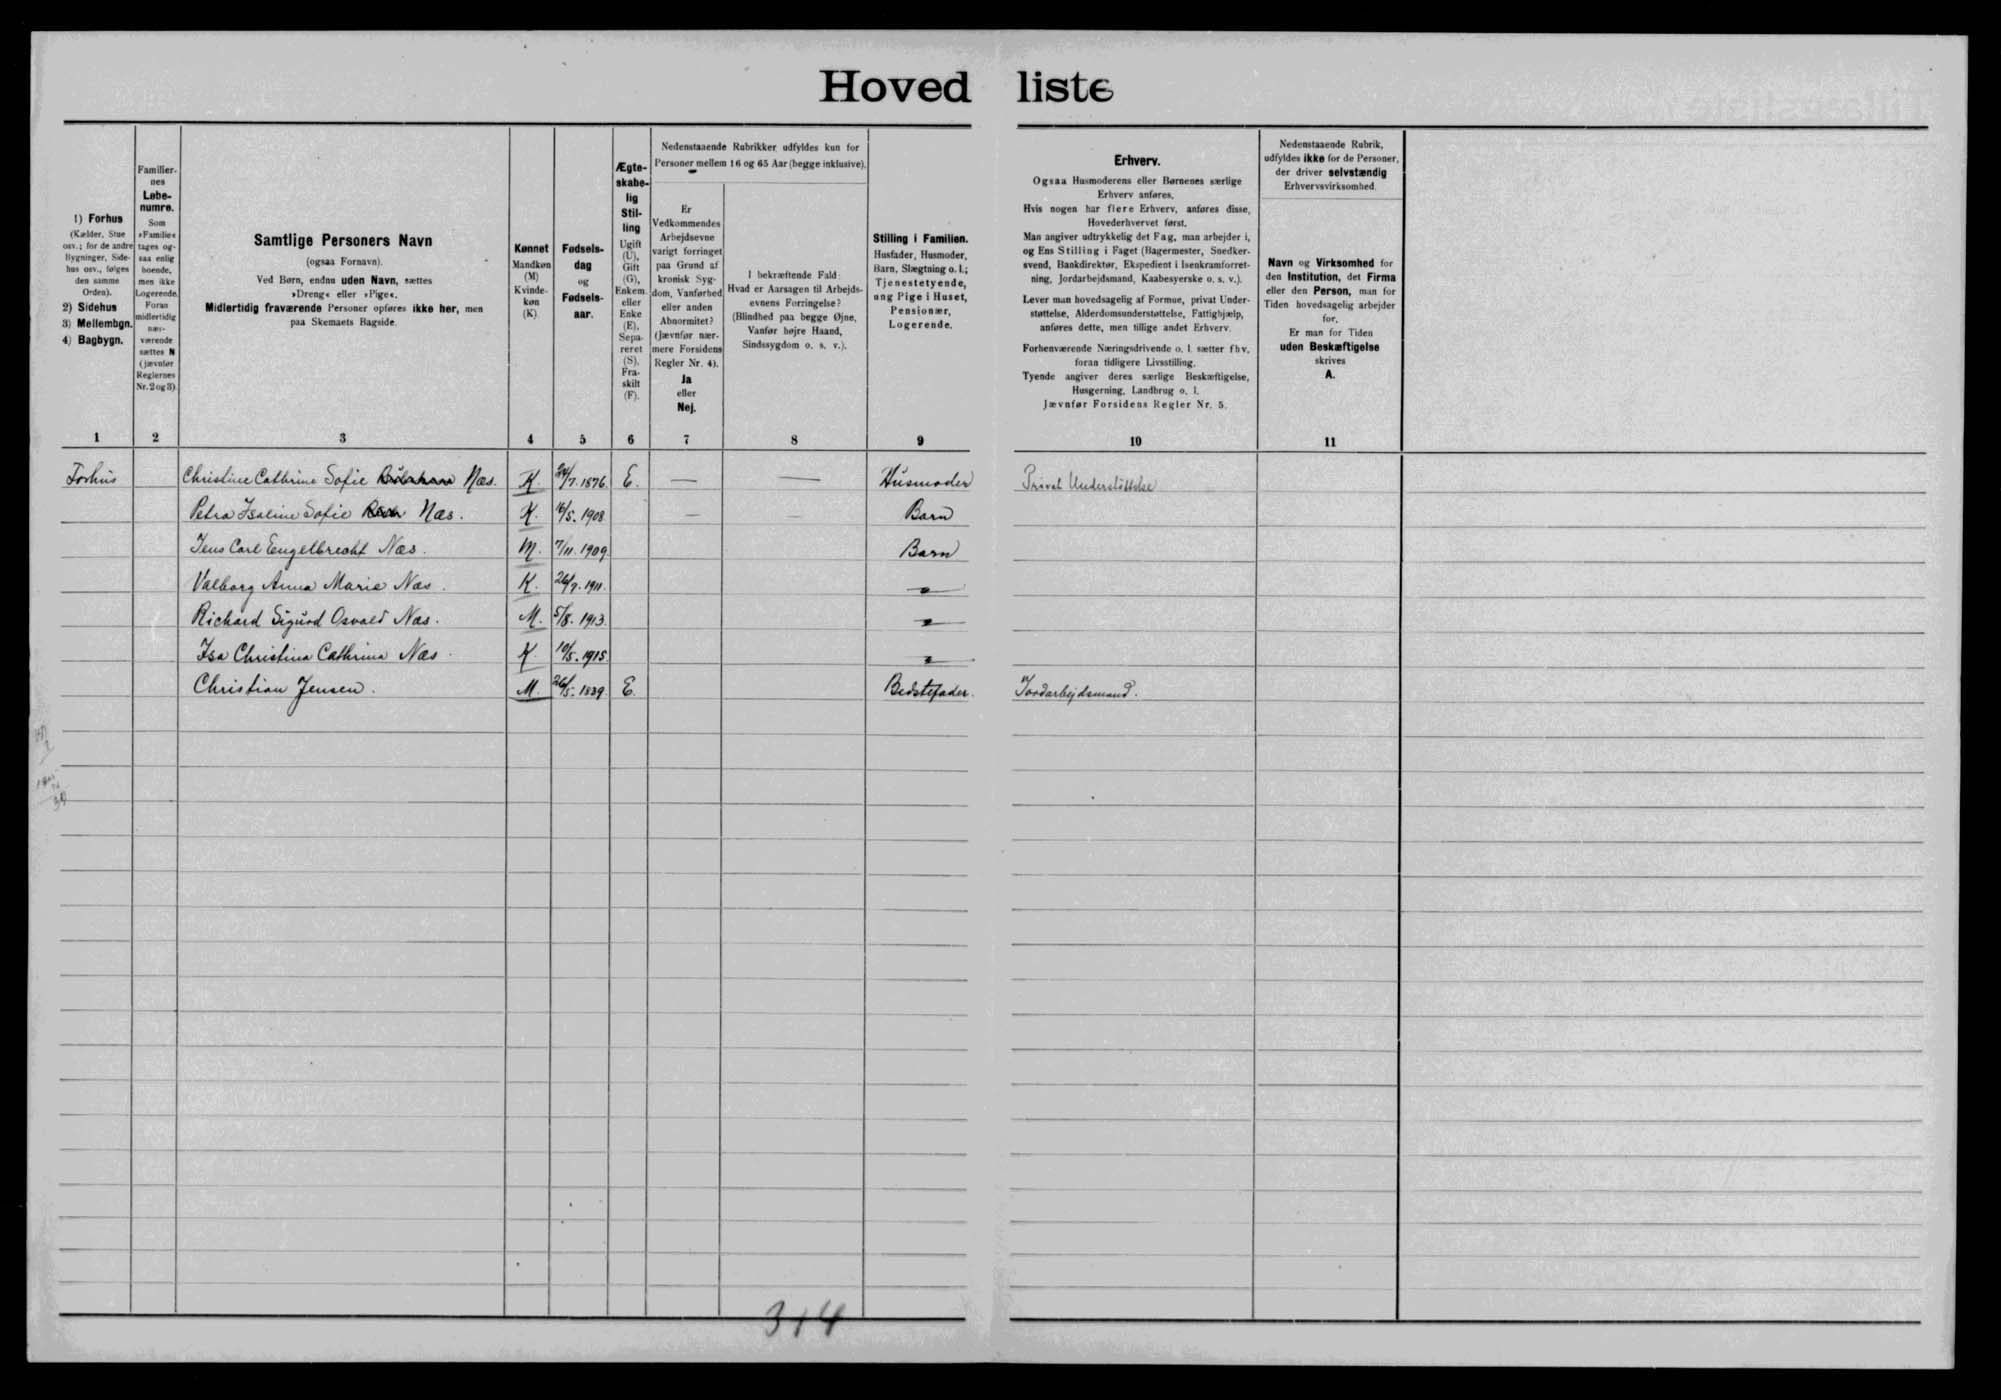 Hovedliste
1) Forhus
(Kælder, Stue
osv.; for de andre
Bygninger, Side-
hus osv., følges
den samme
Orden).
2) Sidehus
3) Mellembgn.
4) Bagbygn.
Familier-
nes
Løbe-
numre.
Som
»Familie«
tages og-
saa enlig
boende,
men ikke
Logerende.
Foran
midlertidig
nær-
værende
sættes N
(jævnfør
Reglernes
Nr. 2 og 3).
Samtlige Personers Navn
(ogsaa Fornavn).
Ved Børn, endnu uden Navn, sættes
»Dreng« eller »Pige«.
Midlertidig fraværende Personer opføres ikke her, men
paa Skemaets Bagside.
Kønnet
Mandkøn
(M)
Kvinde-
køn
(K).
Fødsels-
dag
og
Fødsels-
aar.
Ægte-
skabe-
lig
Stil-
ling
Ugift
(U),
Gift
(G),
Enkem.
eller
Enke
(E),
Sepa-
reret
(S),
Fra-
skilt
(F).
Nedenstaaende Rubrikker udfyldes kun for
Personer mellem 16 og 65 Aar (begge inklusive).
Er
Vedkommendes
Arbejdsevne
varigt forringet
paa Grund af
kronisk Syg-
dom, Vanførhed
eller anden
Abnormitet?
(Jævnfør nær-
mere Forsidens
Regler Nr. 4).
Ja
eller
Nej.
I bekræftende Fald:
Hvad er Aarsagen til Arbejds-
evnens Forringelse?
(Blindhed paa begge Øjne,
Vanfør højre Haand,
Sindssygdom o. s. v.).
Stilling i Familien.
Husfader, Husmoder,
Barn, Slægtning o. l.;
Tjenestetyende,
ung Pige i Huset,
Pensionær,
Logerende.
Erhverv.
Ogsaa Husmoderens eller Børnenes særlige
Erhverv anføres.
Hvis nogen har flere Erhverv, anføres disse,
Hovederhvervet først.
Man angiver udtrykkelig det Fag, man arbejder i,
og Ens Stilling i Faget (Bagermester, Snedker-
svend, Bankdirektør, Ekspedient i Isenkramforret-
ning, Jordarbejdsmand, Kaabesyerske o. s. v.).
Lever man hovedsagelig af Formue, privat Under-
støttelse, Alderdomsunderstøttelse, Fattighjælp,
anføres dette, men tillige andet Erhverv.
Forhenværende Næringsdrivende o. l. sætter fhv.
foran tidligere Livsstilling.
Tyende angiver deres særlige Beskæftigelse,
Husgerning, Landbrug o. l.
Jævnfør Forsidens Regler Nr. 5.
Nedenstaaende Rubrik,
udfyldes ikke for de Personer,
der driver selvstændig
Erhvervsvirksomhed.
Navn og Virksomhed for
den Institution, det Firma
eller den Person, man for
Tiden hovedsagelig arbejder
for.
Er man for Tiden
uden Beskæftigelse
skrives
A.
1 2 3 4 5 6 7 8 9 10 11
Forhus Christine Cathrine Sofie Næs. K. 24/7. 1876. E. — — Husmoder Privat Understøttelse
Petra Isaline Sofie Næs. K. 16/5. 1908. — — Barn
Jens Carl Engelbrecht Næs. M. 7/11. 1909. Barn
Valborg Anna Marie Næs. K. 26/7. 1911. "
Richard Sigurd Osvald Næs. M. 5/8. 1913. "
Isa Christina Cathrina Næs. K. 10/5. 1915. "
Christian Jensen. M. 26/5. 1839. E. Bedstefader. Jordarbejdsmand.
314